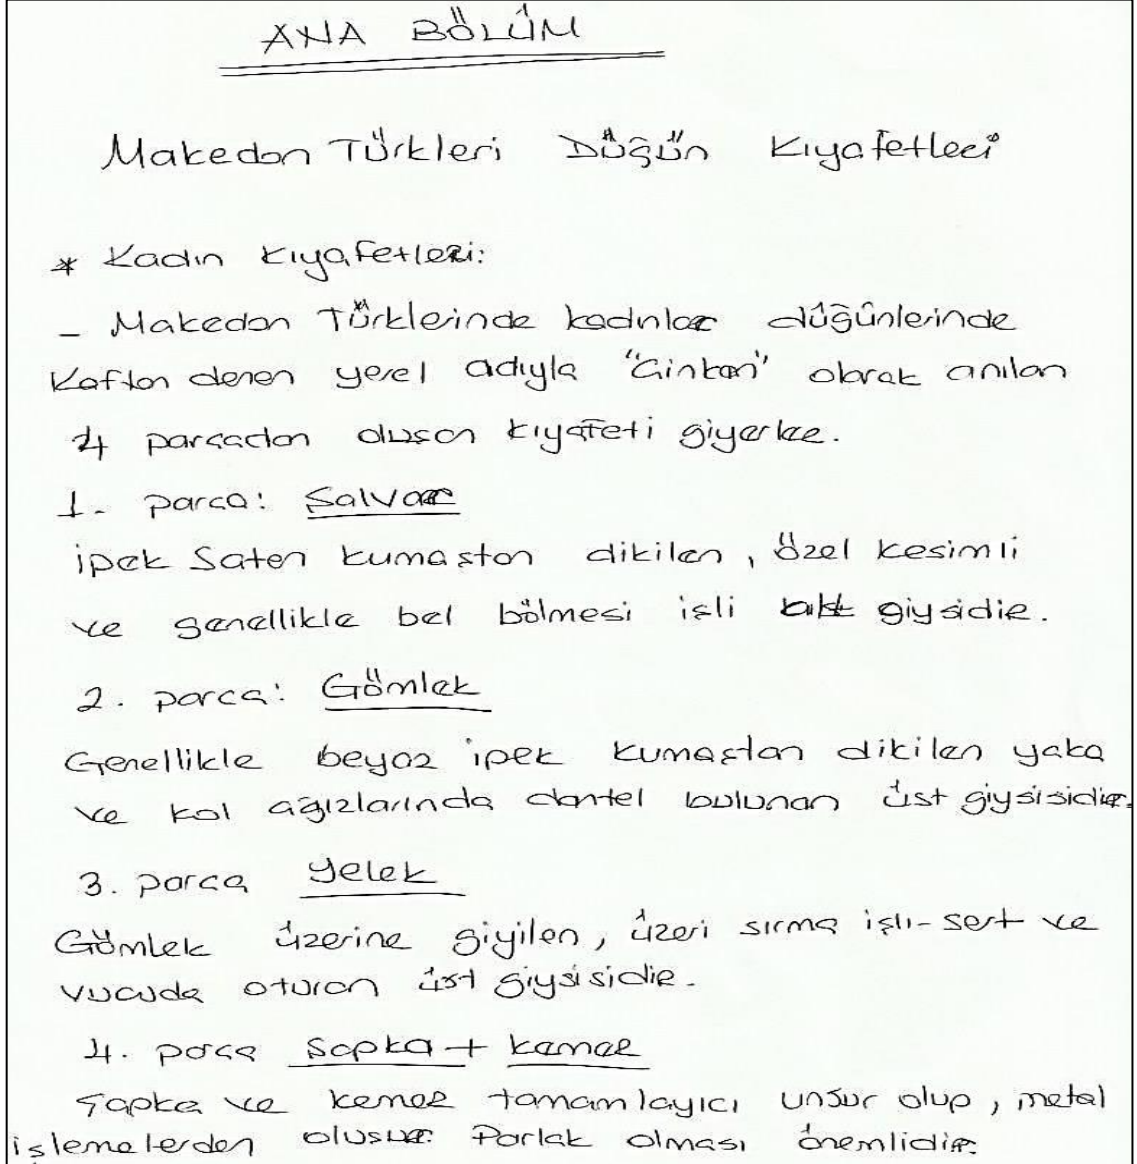 ANA BÖLÜM
Makedon Türkleri Düğün Kıyafetleri
* Kadın Kıyafetleri:
- Makedon Türklerinde kadınlar düğünlerinde
Kaftan denen yerel adıyla "Cintan" olarak anılan
4 parçadan oluşan kıyafeti giyerler.
1. parça: Şalvar
İpek Saten kumaştan dikilen, özel kesimli
ve genellikle bel bölmesi işli giysidir.
2. parça: Gömlek
Genellikle beyaz ipek kumaştan dikilen yaka
ve kol ağızlarında dantel bulunan üst giysisidir.
3. parça Yelek
Gömlek üzerine giyilen, üzeri sırma işli-sert ve
vucuda oturan üst giysisidir.
4. parça Şapka + kemer
Şapka ve kemer tamamlayıcı unsur olup, metal
işlemelerden oluşur. Parlak olması önemlidir.